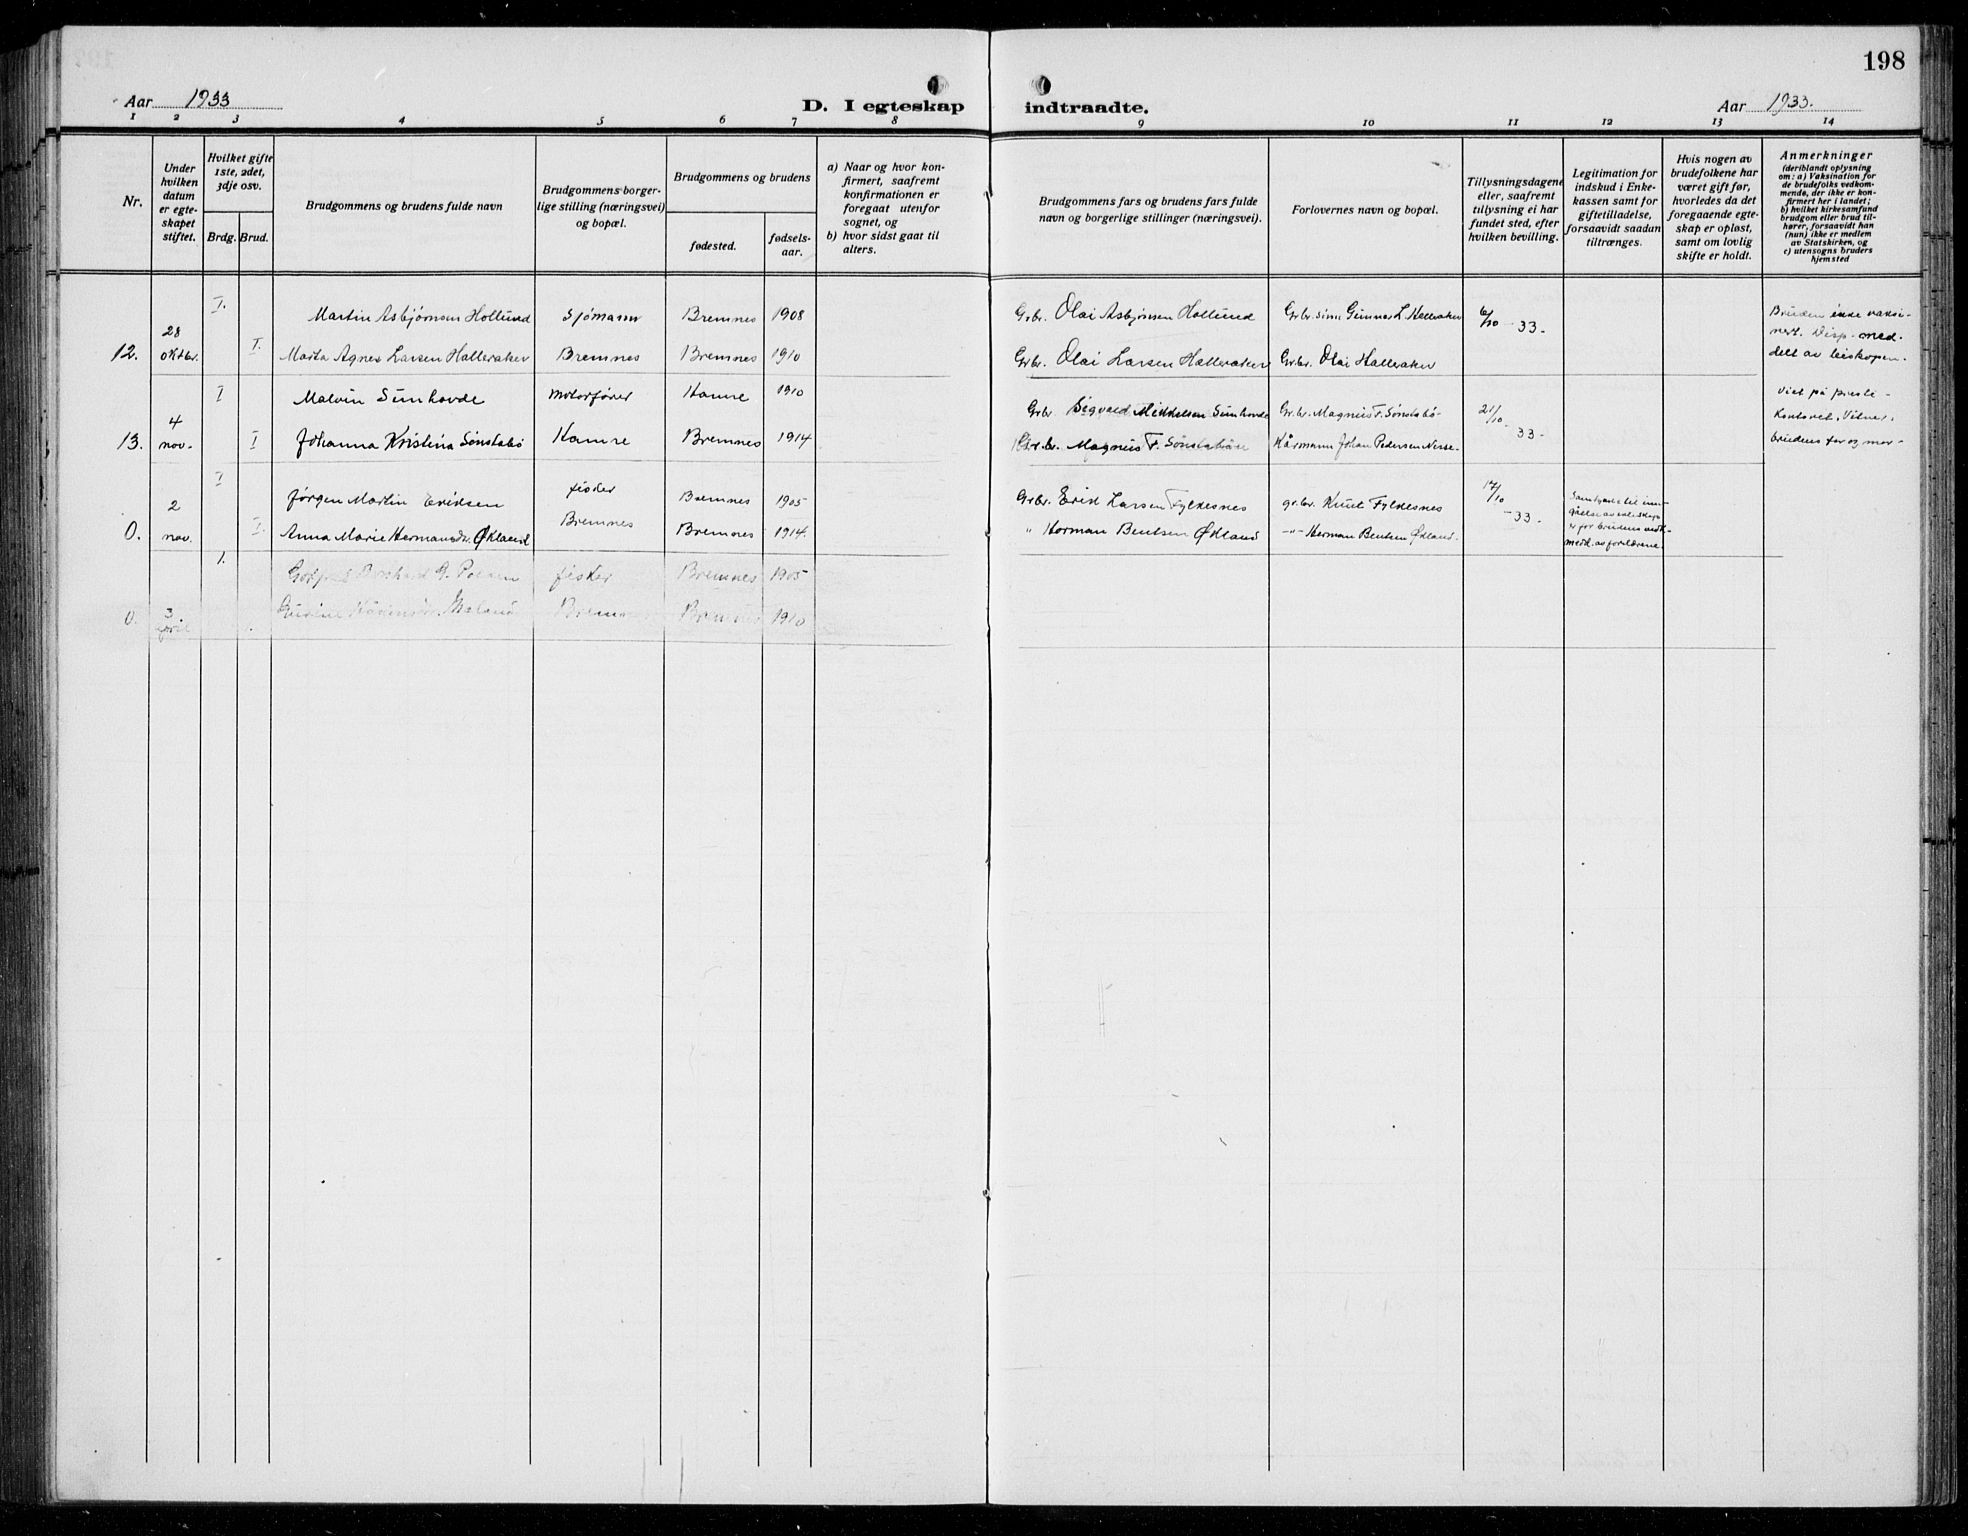 198
Aar 1933
D. I egteskap indtraadte.
Aar 1933.
1 2 3 4 5 6 7 8 9 10 11 12 13 14
Nr.
Under
hvilken
datum
er egte-
skapet
stiftet.
Hvilket gifte
1ste, 2det,
3dje osv.
Brdg. Brud.
Brudgommens og brudens fulde navn
Brudgommens borger-
lige stilling (næringsvei)
og bopæl.
Brudgommens og brudens
fødested.
fødsels-
aar.
a) Naar og hvor kon-
firmert, saafremt
konfirmationen er
foregaat utenfor
sognet, og
b) hvor sidst gaat til
alters.
Brudgommens fars og brudens fars fulde
navn og borgerlige stillinger (næringsvei).
Forlovernes navn og bopæl.
Tillysningsdagene
eller, saafremt
tillysning ei har
fundet sted, efter
hvilken bevilling.
Legitimation for
indskud i Enke-
kassen samt for
giftetilladelse,
forsaavidt saadan
tiltrænges.
Hvis nogen av
brudefolkene har
været gift før,
hvorledes da det
foregaaende egte-
skap er opløst,
samt om lovlig
skifte er holdt.
Anmerkninger
(deriblandt oplysning
om: a) Vaksination for
de brudefolks vedkom-
mende, der ikke er kon-
firmert her i landet;
b) hvilket kirkesamfund
brudgom eller brud til-
hører, forsaavidt han
(hun) ikke er medlem
av Statskirken, og
c) utensogns bruders
hjemsted
I. Martin Asbjørnsen Hollund Sjømann Bremnes 1908 Grbr. Olai Asbjønsen Hollund Grbr. sønn Gunnar L. Halleraker 6/10 - 33 - Bruden ikke vaksi-
12. 28 oktbr. I. Marta Agnes Larsen Halleraker Bremnes Bremnes 1910 Grbr. Olai Larsen Halleraker Grbr. Olai Halleraker nert. Disp. med-
delt av biskopen.
I Malvin Simhovde motorfører Hamre 1910 Grbr Sigvald Mikkelsen Simhovde Gr.br. Magnus F. Sønstabø- 21/10 - 33 - Viet på preste-
13. 4 nov. I Johanna Kristina Sønstabø Hamre Bremnes 1914 Gr.br. Magnus F. Sønstabø Kårmann Johan Pedersen Nesse- kontoret. Vitner
brudens far og mor-
I Jørgen Martin Eriksen fisker Bremnes 1905 Grbr. Erik Larsen Fylkesnes gr.br. Knut Fylkesnes 17/10 - 33 - Samtykke til inn-
gåelse av ekteskap
0. 2 nov. I. Anna Marie Hermansdr. Økland Bremnes Bremnes 1914. " Herman Bentsen Økland -"- Herman Bentsen Økland. er for brudens vedk.
medd. av foreldrene.
1. G. fisker Bremnes 1905
0. 3 april Bremnes Bremnes 1910